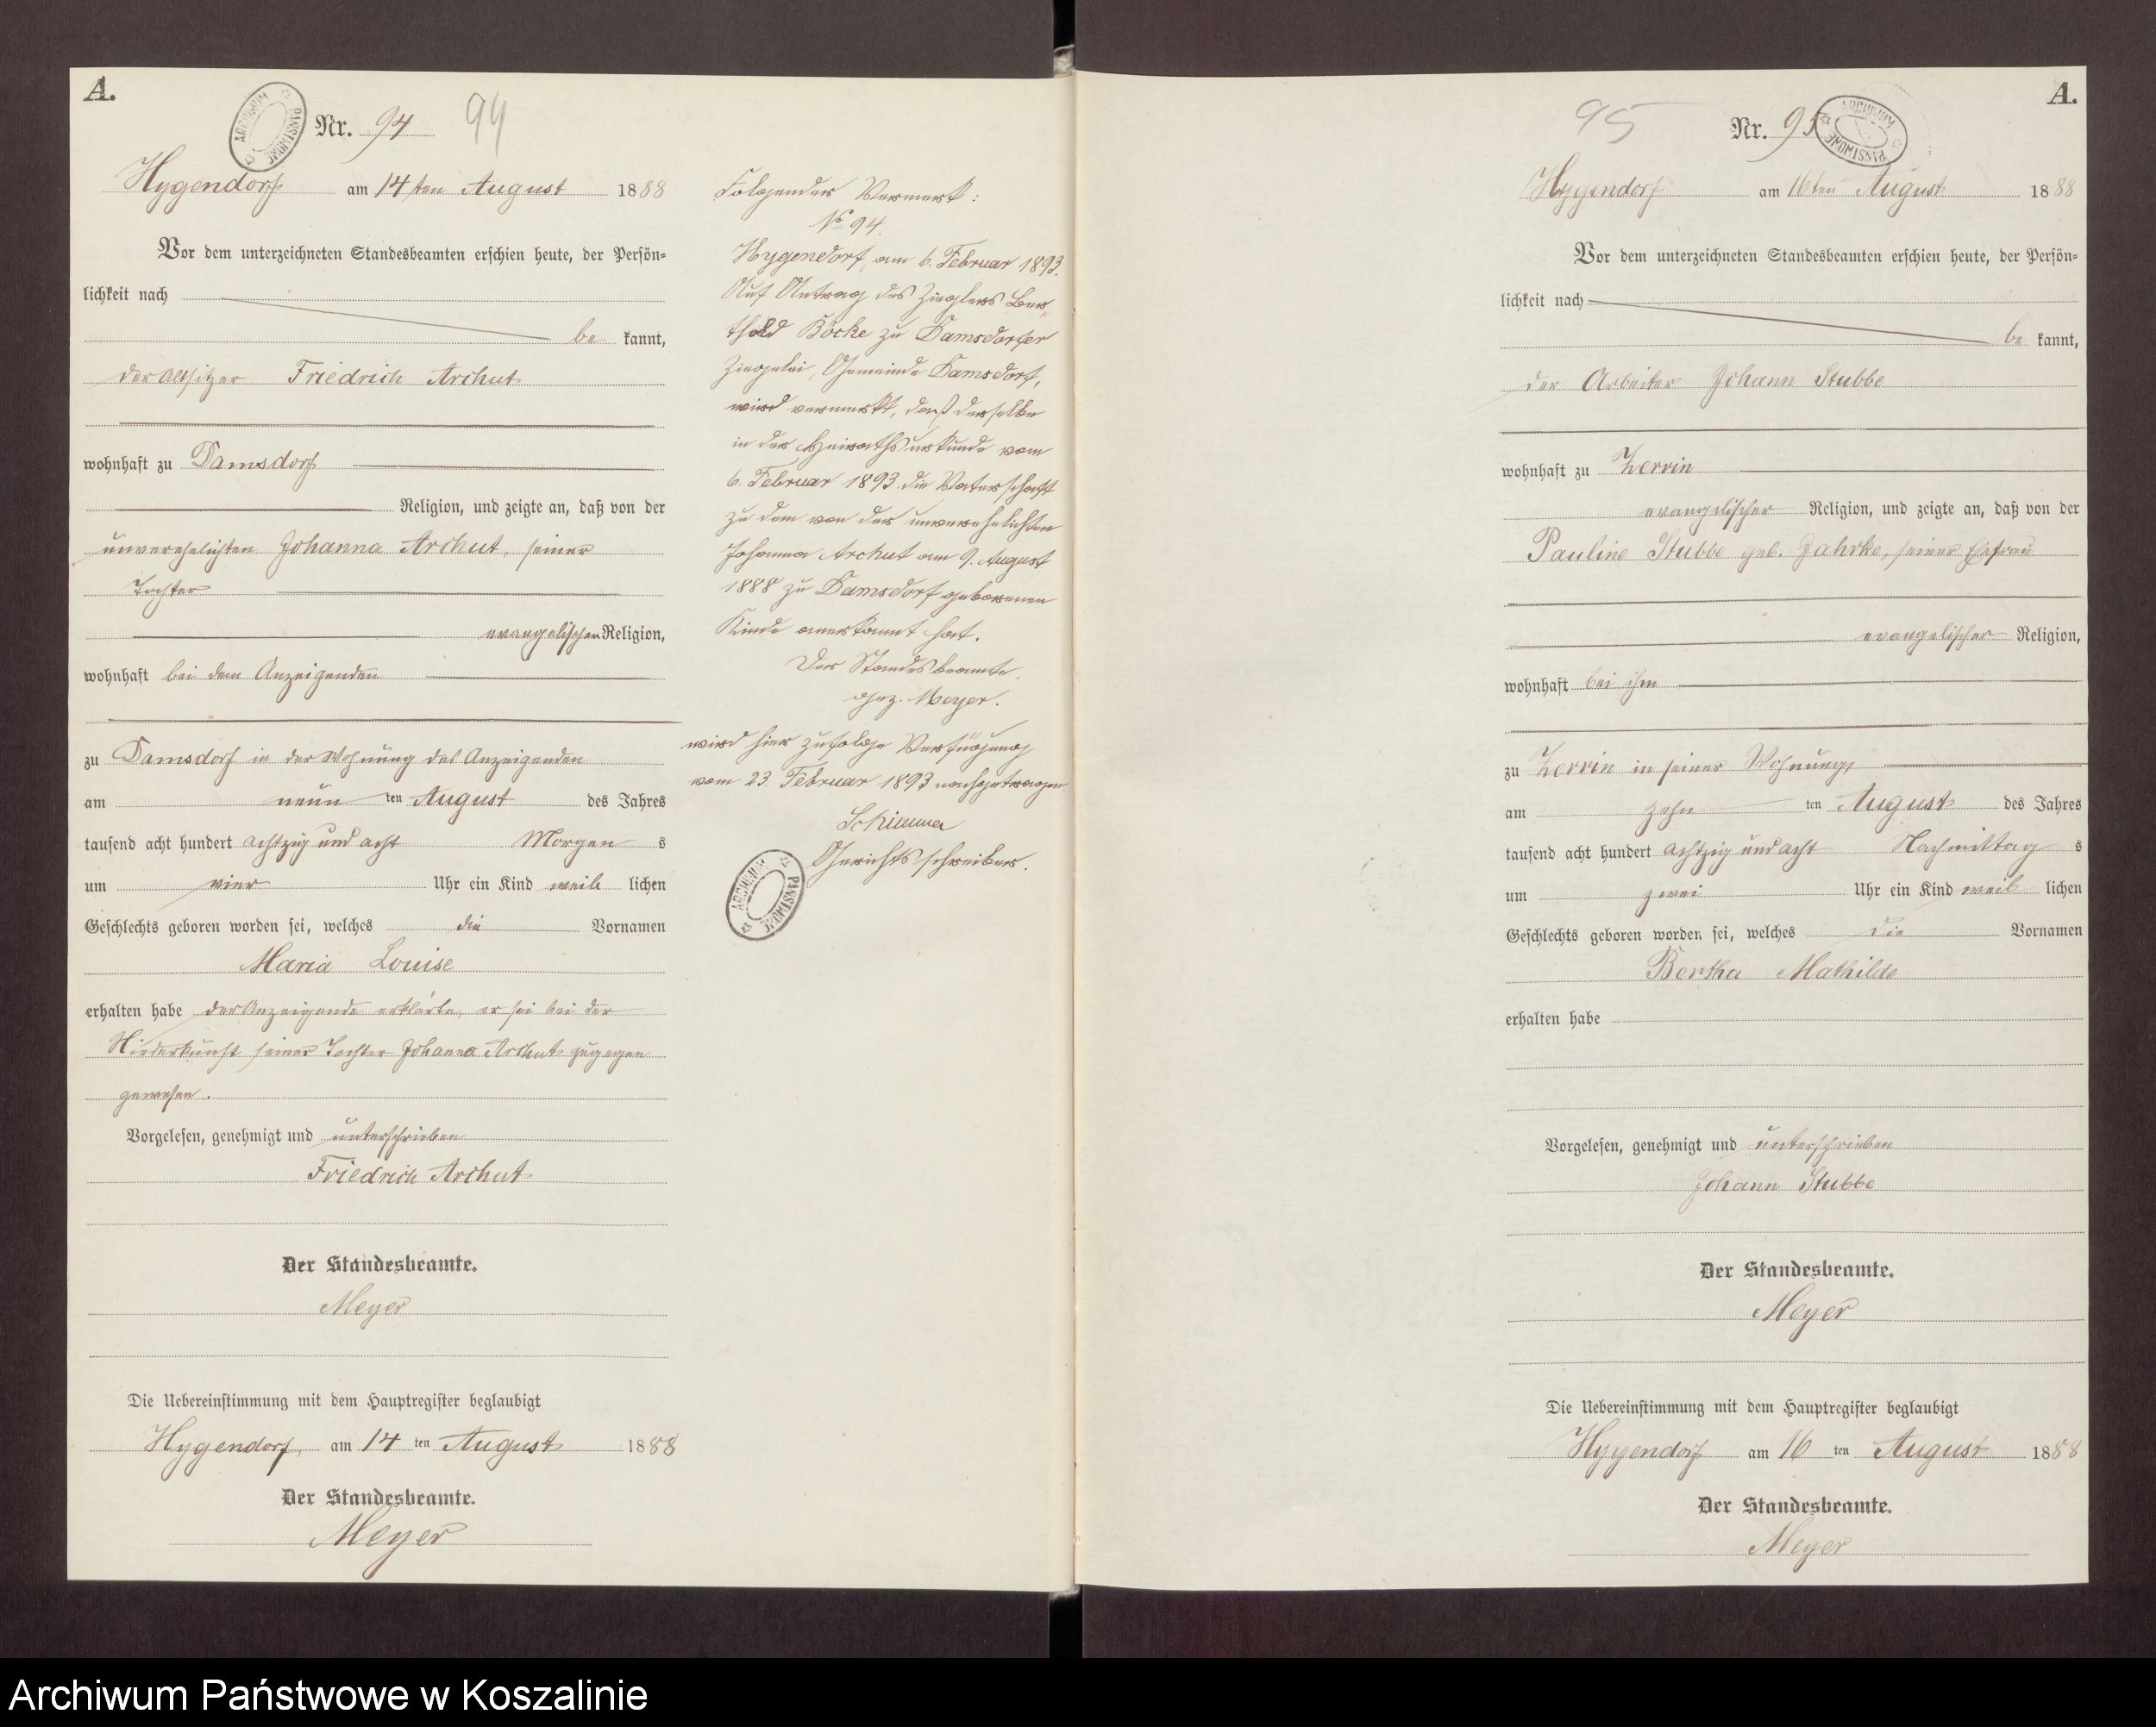 A.
Nr. 94 94
Hygendorf am 14ten August 1888
Vor dem unterzeichneten Standesbeamten erschien heute, der Persön-
lichkeit nach
be kannt,
der Altsitzer Friedrich Archut
wohnhaft zu Damsdorf
Religion, und zeigte an, daß von der
unverehelichten Johanna Archut, seiner
Tochter
evangelischen Religion,
wohnhaft bei dem Anzeigenden
zu Damsdorf in der Wohnung des Anzeigenden
am neun ten August des Jahres
tausend acht hundert achtzig und acht Morgen s
um vier Uhr ein Kind weib lichen
Geschlechts geboren worden sei, welches die Vornamen
Maria Louise
erhalten habe der Anzeigende erklärte, er sei bei der
Niederkunft seiner Tochter Johanna Archut zugegen
gewesen.
Vorgelesen, genehmigt und unterschrieben
Friedrich Archut
Der Standesbeamte.
Meyer
Die Uebereinstimmung mit dem Hauptregister beglaubigt
Hygendorf, am 14 ten August 1888
Der Standesbeamte.
Meyer
Folgender Vermerk:
No 94.
Hygendorf, am 6. Februar 1893.
Auf Antrag des Zieglers Ber-
thold Böcke zu Damsdorfer
Ziegelei, Gemeinde Damsdorf,
wird vermerkt, daß derselbe
in der Heirathsurkunde vom
6. Februar 1893 die Vaterschaft
zu dem von der unverehelichten
Johanna Archut am 9. August
1888 zu Damsdorf geborenen
Kinde anerkannt hat.
Der Standesbeamte.
gez. Meyer.
wird hier zufolge Verfügung
vom 23 Februar 1893 nachgetragen
Gerichtsschreiber.
ARCHIWUM PAŃSTWOWE
A.
95 Nr. 95
ARCHIWUM PAŃSTWOWE
Hygendorf am 16ten August 1888
Vor dem unterzeichneten Standesbeamten erschien heute, der Persön-
lichkeit nach
be kannt,
der Arbeiter Johann Stubbe
wohnhaft zu Zerrin
evangelischer Religion, und zeigte an, daß von der
Pauline Stubbe geb. Jahrke, seiner Ehefrau
evangelischer Religion,
wohnhaft bei ihm
zu Zerrin in seiner Wohnung
am zehn ten August des Jahres
tausend acht hundert achtzig und acht Nachmittag s
um zwei Uhr ein Kind weib lichen
Geschlechts geboren worden sei, welches die Vornamen
Bertha Mathilde
erhalten habe
Vorgelesen, genehmigt und unterschrieben
Johann Stubbe
Der Standesbeamte.
Meyer
Die Uebereinstimmung mit dem Hauptregister beglaubigt
Hygendorf am 16 ten August 1888
Der Standesbeamte.
Meyer
Archiwum Państwowe w Koszalinie